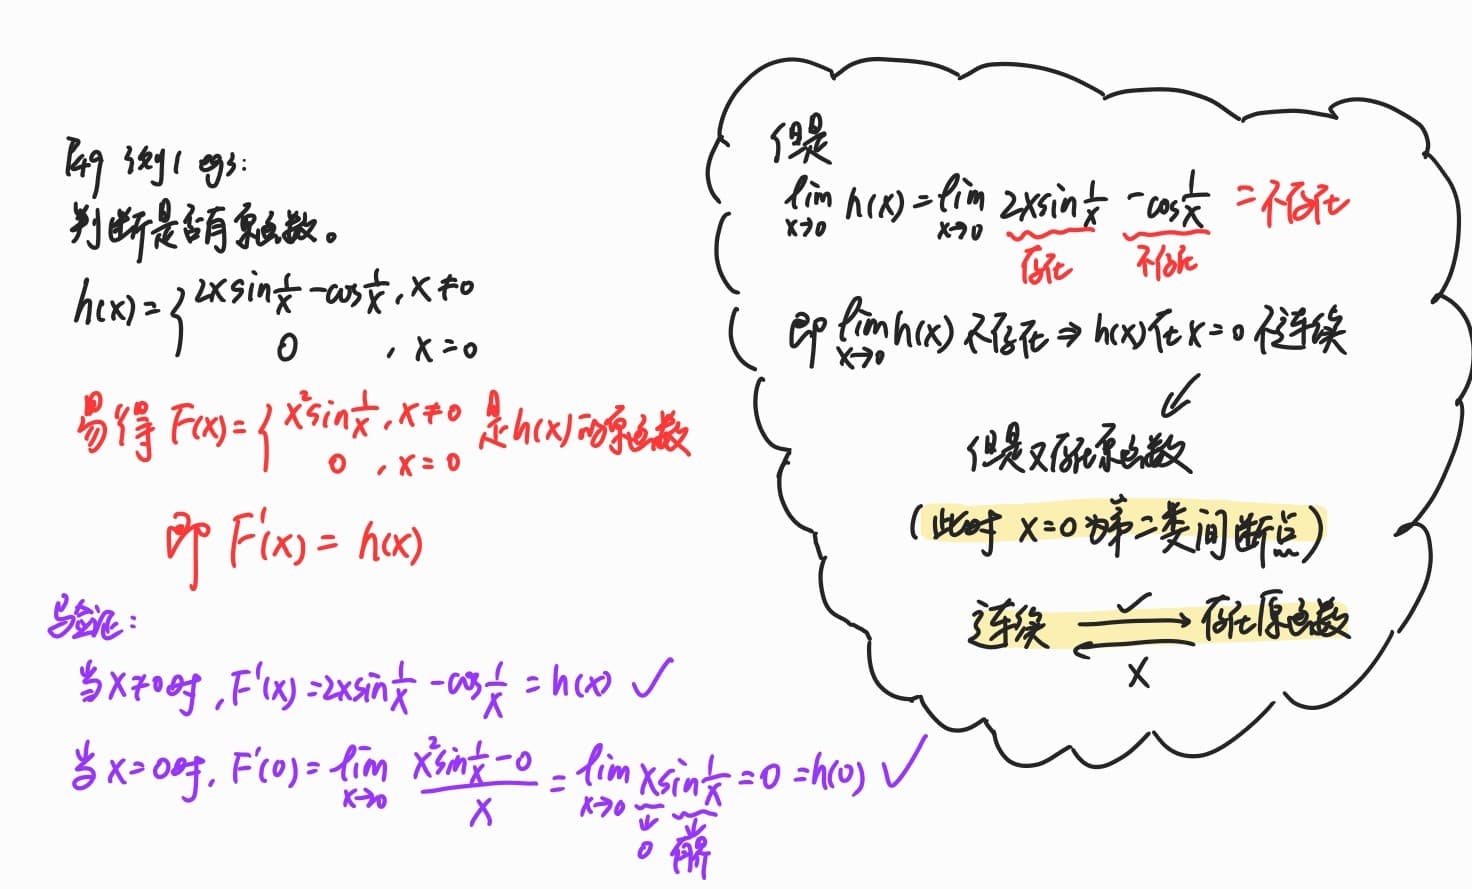 P49 例1 eg3:
判断是否有原函数。
h(x)={2xsin1/x-cos1/x, x≠0
0, x=0
易得 F(x)={x²sin1/x, x≠0 是h(x)的原函数
0, x=0
即 F'(x)=h(x)
验证:
当x≠0时, F'(x)=2xsin1/x-cos1/x=h(x) ✓
当x=0时, F'(0)=lim x→0 (x²sin1/x-0)/x=lim x→0 xsin1/x=0=h(0) ✓
↓ ↓
0 有界
但是
lim x→0 h(x)=lim x→0 2xsin1/x -cos1/x =不存在
存在 不存在
即 lim x→0 h(x) 不存在 ⇒ h(x)在x=0不连续
↙
但是又存在原函数
(此时 x=0为第二类间断点)
✓
连续 ⇄ 存在原函数
X